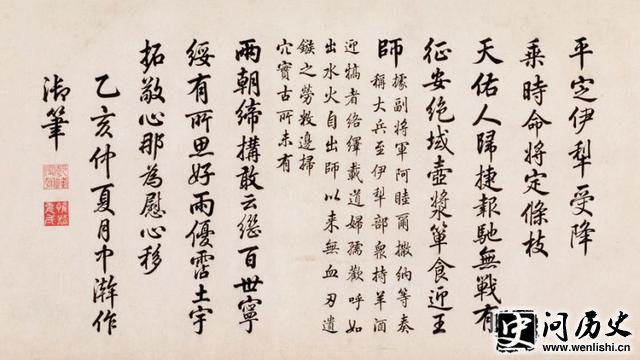 平定伊犁受降
乘時命將定條枝
天佑人歸捷報馳無戰有
征安絕域壺漿簞食迎王
師
據副將軍阿睦爾撒納等奏
稱大兵至伊犁部衆持羊酒
迎犒者絡繹載道婦孺歡呼如
出水火自出師以來無血刃遺
鏃之勞敉邊掃
穴實古所未有
兩朝締搆敢云繼百世寧
綏有所思好雨優霑土宇
拓敬心那為慰心移
乙亥仲夏月中澣作
御筆
问历史
www.wenlishi.cn